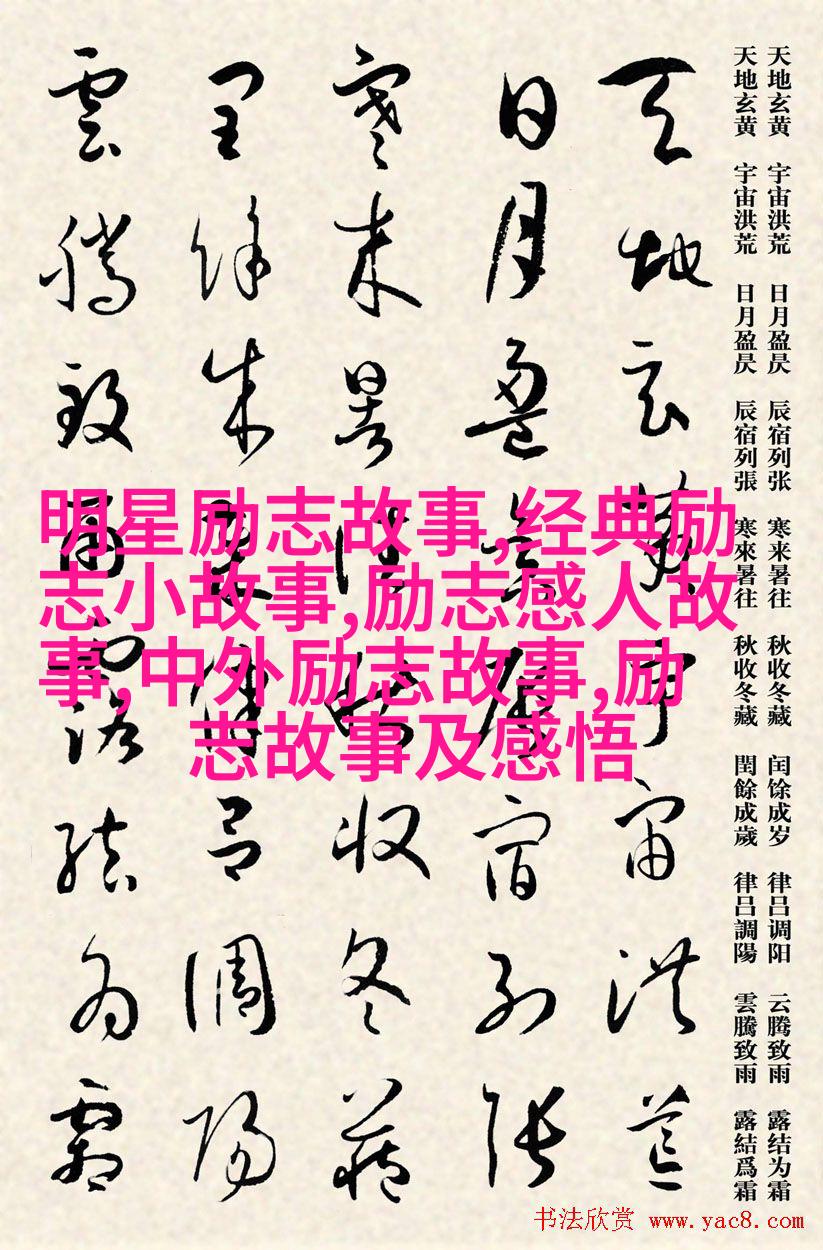 天地玄黄 宇宙洪荒 日月盈昃 辰宿列张 寒来暑往 秋收冬藏 闰馀成岁 律吕调阳 云腾致雨 露结为霜
天地玄黄 宇宙洪荒 日月盈昃 辰宿列張 寒來暑往 秋收冬藏 閏餘成歲 律吕調陽 雲騰致雨 露結爲霜
天地玄黄宇宙洪荒
日月盈昃辰宿列張
寒来暑往秋收冬藏
閏餘成歲律吕調陽
雲騰致雨露結為霜
明星励志故事,经典励
志小故事,励志感人故
事,中外励志故事,励
志故事及感悟
书法欣赏 www.yac8.com